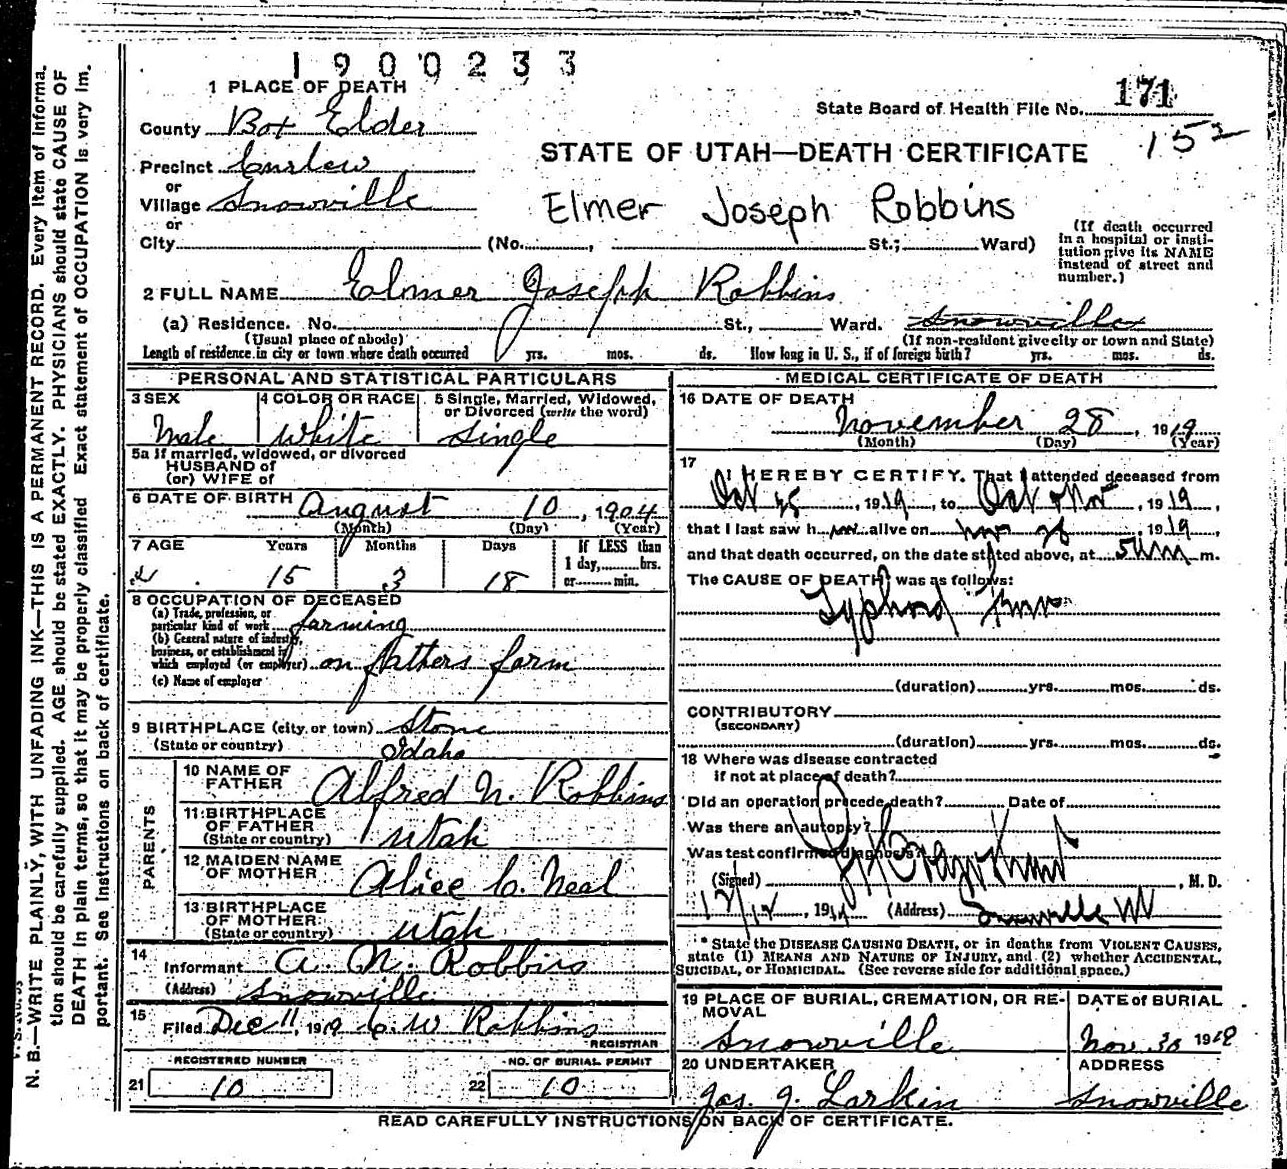 1900233
1 PLACE OF DEATH
State Board of Health File No. 171
152
County Box Elder
Precinct Curlew
or
Village Snowville
or
STATE OF UTAH—DEATH CERTIFICATE
Elmer Joseph Robbins
City (No. , St.; Ward)
(If death occurred
in a hospital or insti-
tution give its NAME
instead of street and
number.)
2 FULL NAME Elmer Joseph Robbins
(a) Residence. No. St., Ward. Snowville
(Usual place of abode) (If non-resident give city or town and State)
Length of residence in city or town where death occurred yrs. mos. ds. How long in U. S., if of foreign birth? yrs. mos. ds.
PERSONAL AND STATISTICAL PARTICULARS
3 SEX 4 COLOR OR RACE 5 Single, Married, Widowed,
or Divorced (write the word)
Male White Single
5a If married, widowed, or divorced
HUSBAND of
(or) WIFE of
6 DATE OF BIRTH August 10, 1904
(Month) (Day) (Year)
7 AGE Years Months Days If LESS than
1 day, hrs.
or min.
15 3 18
8 OCCUPATION OF DECEASED
(a) Trade, profession, or
particular kind of work farming
(b) General nature of industry,
business, or establishment in
which employed (or employer) on fathers farm
(c) Name of employer
9 BIRTHPLACE (city or town) Stone
(State or country) Idaho
PARENTS
10 NAME OF
FATHER Alfred N. Robbins
11 BIRTHPLACE
OF FATHER
(State or country) Utah
12 MAIDEN NAME
OF MOTHER Alice C. Neal
13 BIRTHPLACE
OF MOTHER
(State or country) Utah
14
Informant A. N. Robbins
(Address) Snowville
15
Filed Dec 11, 1919 C. W Robbins
REGISTRAR
REGISTERED NUMBER NO. OF BURIAL PERMIT
21 10 22 10
MEDICAL CERTIFICATE OF DEATH
16 DATE OF DEATH
November 28, 1919
(Month) (Day) (Year)
17
I HEREBY CERTIFY, That I attended deceased from
Oct 25, 1919, to Oct 1919,
that I last saw h alive on Nov 28, 1919
and that death occurred, on the date stated above, at 5 m.
The CAUSE OF DEATH was as follows:
Typhoid Fever
(duration) yrs. mos. ds.
CONTRIBUTORY
(SECONDARY)
(duration) yrs. mos. ds.
18 Where was disease contracted
if not at place of death?
Did an operation precede death? Date of
Was there an autopsy?
Was test confirmed diagnosis?
(Signed) , M. D.
12/12, 1919 (Address) Snowville
* State the DISEASE CAUSING DEATH, or in deaths from VIOLENT CAUSES,
state (1) MEANS AND NATURE OF INJURY, and (2) whether ACCIDENTAL,
SUICIDAL, or HOMICIDAL. (See reverse side for additional space.)
19 PLACE OF BURIAL, CREMATION, OR RE-
MOVAL
DATE of BURIAL
Snowville Nov. 30 1919
20 UNDERTAKER ADDRESS
Jas. J. Larkin Snowville
READ CAREFULLY INSTRUCTIONS ON BACK OF CERTIFICATE.
N. B.—WRITE PLAINLY, WITH UNFADING INK—THIS IS A PERMANENT RECORD. Every item of informa-
tion should be carefully supplied. AGE should be stated EXACTLY. PHYSICIANS should state CAUSE OF
DEATH in plain terms, so that it may be properly classified. Exact statement of OCCUPATION is very im-
portant. See instructions on back of certificate.